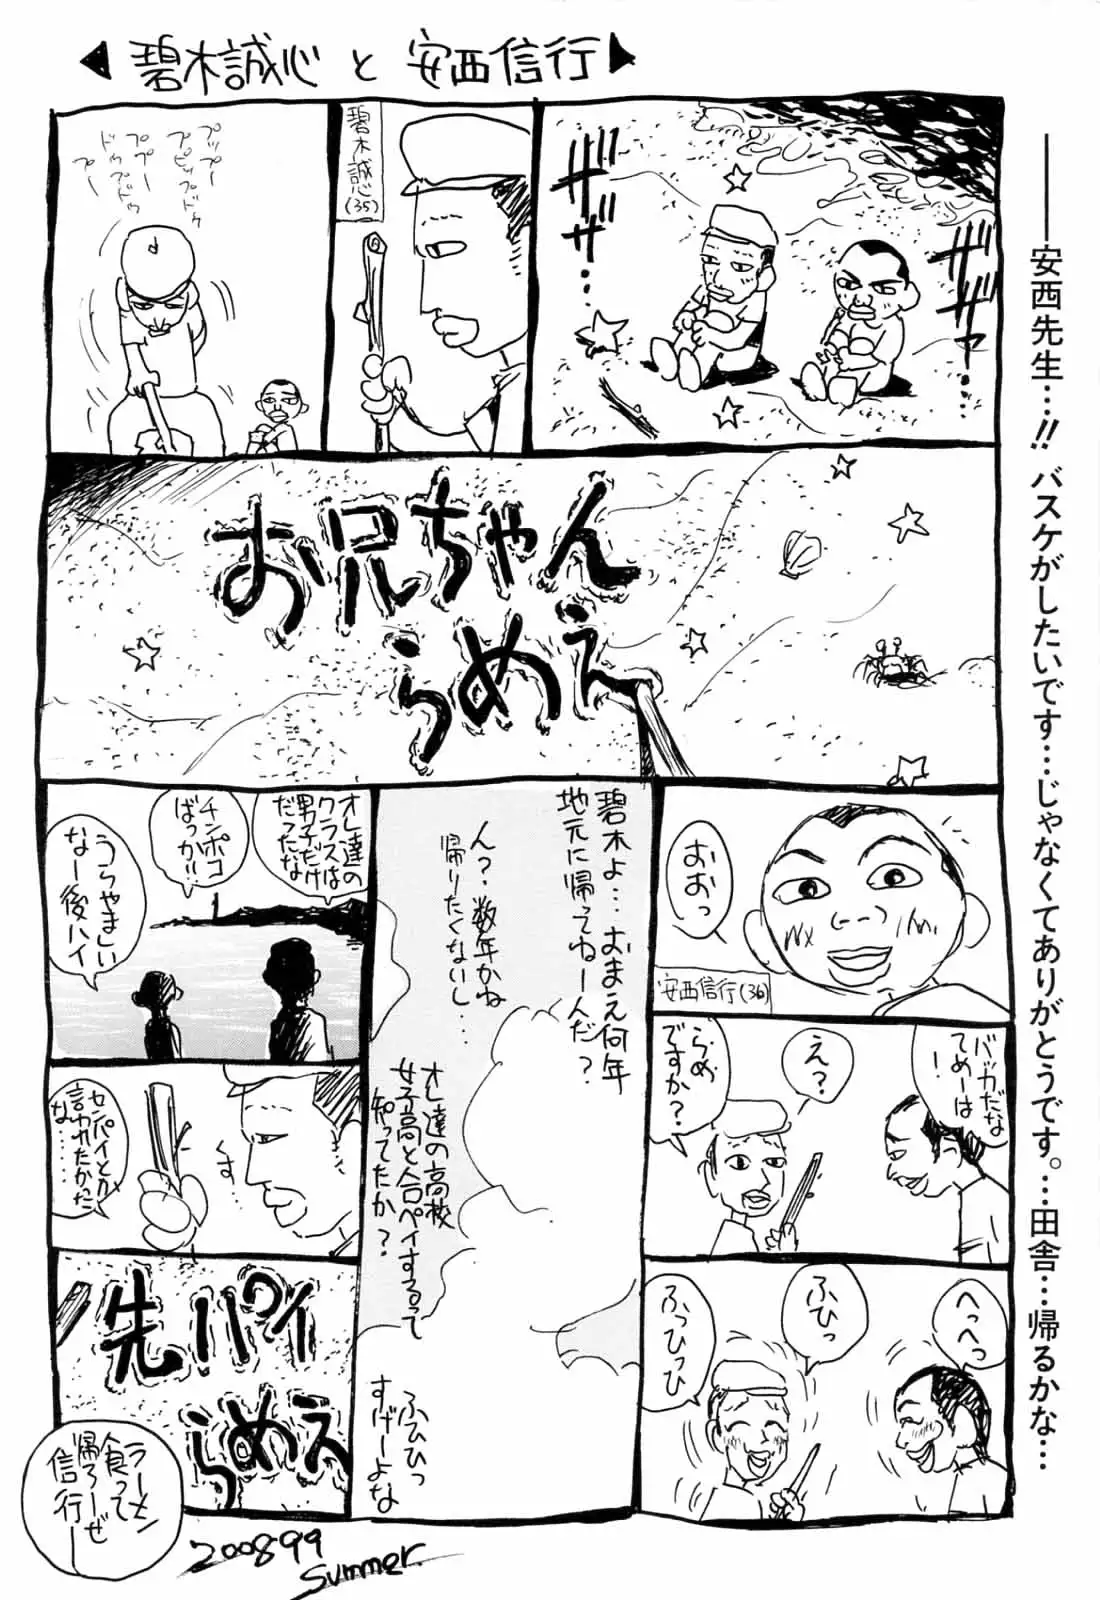 碧木誠心と安西信行
――安西先生…!! バスケがしたいです…じゃなくてありがとうです。…田舎…帰るかな…
ザザザァ…
ザザザ…
碧木誠心(35)
プップー
プピップドゥ
ププー
ドゥブドゥ
プー
お兄ちゃん
らめえ
おおっ
安西信行(36)
バッカだな
てめーは!
え?
らめ
ですか?
へっへっ
ふひっ
ふっひっひ
碧木よ…おまえ何年
地元に帰ってねーんだ?
ん?数年かね
帰りたくないし…
オレ達の高校
女子高と合ペイするって
知ってたか?
ふひひっ
すげーよな
オレ達の
クラスは
男子だけ
だってたな
チンポコ
ばっか!!
うらやましい
なー後ハイ
センパイとか
言われたかった
な……
先パイ
らめえ
ラーメン
食って
帰ろーぜ
信行ー
200899
summer.